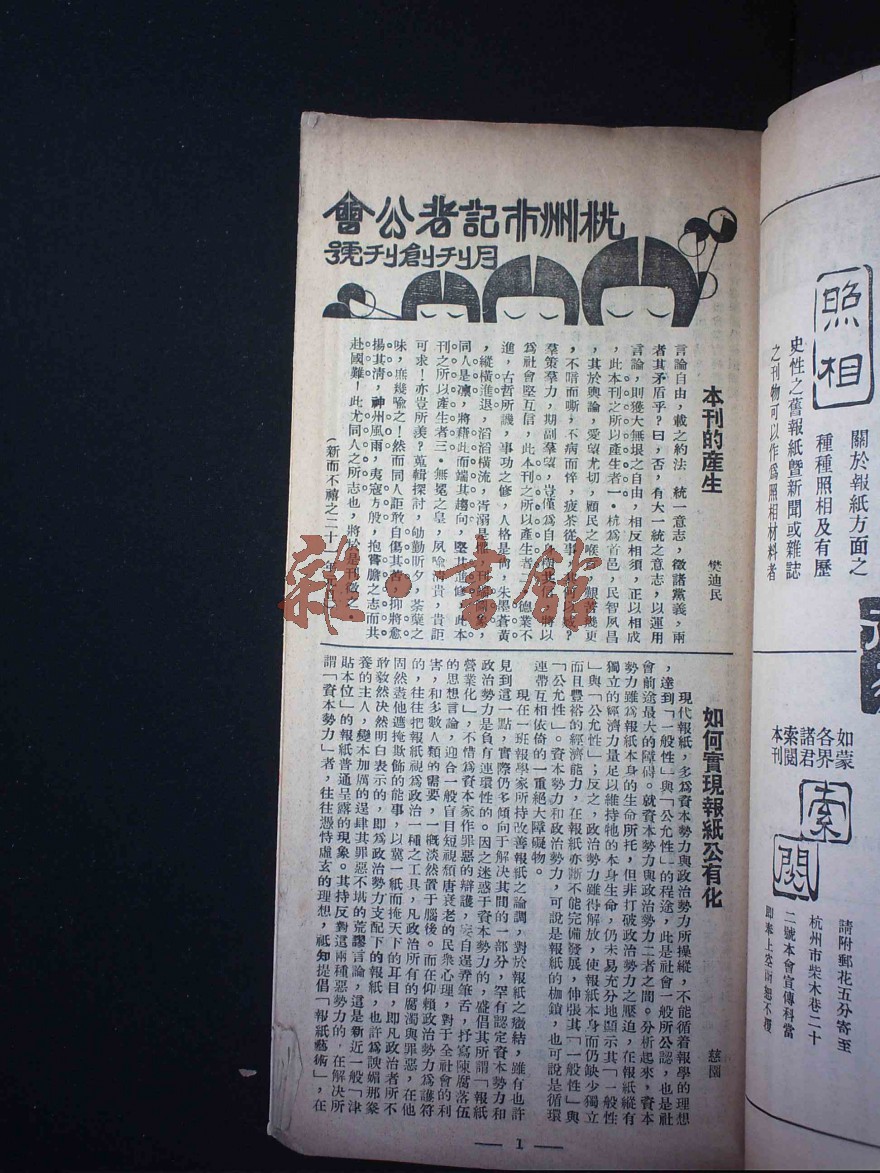 杭州市記者公會
月刊創刊號
本刊的產生
樊迪民
言論自由，載之約法　統一意志，徵諸黨義，兩
者其矛盾乎？曰，否，有大一統之意志，以運用
言論，則獲大無垠之自由，相反相須，正以相成
，此本刊之所以產生者一。杭為首邑，民智夙昌
，其於輿論，愛望尤切，顧民之喉舌
，不喑而嘶，不病而悴，疲茶從事
羣策羣力，期副羣望，豈僅為自身
為社會堅互信，此本刊之所以產生者二。德業不
進，古哲所譏，事功之修，人格是尚，朱墨蒼黃
，縱橫進退，滔滔橫流，胥溺是
同人是凜，將藉此而端其趨向，堅其進修，此本
刊之所以產生者三。無冕之皇，夙喻清貴，貴詎
可求！亦豈所羨？蒐輯探討，劬勤昕夕，荼蘗之
味，庶幾喻之！然而同人詎敢自傷其苦，抑將愈
揚其清，神州風雨，夷寇方殷，抱嘗膽之志而共
赴國難！此尤同人之所志也，將於是刊徵之
（新而不禧之二十一年
如何實現報紙公有化
慈園
現代報紙，多為資本勢力與政治勢力所操縱，不能循着報學的理想
，達到「一般性」與「公允性」的程途，此是社會一般所公認，也是社
會前途最大的障碍。就資本勢力與政治勢力二者之間。分析起來，資本
勢力雖為報紙本身的生命所托，但非打破政治勢力之壓迫，在報紙縱有
獨立的經濟力量足以維持牠的本身生命，仍未易充分地顯示其「一般性
」與「公允性」；反之，政治勢力雖得解放，使報紙本身而仍缺少獨立
而且豐裕的經濟能力，在報紙亦斷不能完備發展，伸張其「一般性」與
「公允性」。資本勢力和政治勢力，可說是報紙的枷鎖，也可說是循環
連帶互相依倚的一重絕大障礙物。
現在一班報學家所持改善報紙之論調，對於報紙之癥結，雖有也許
見到這一點，實際仍多傾向于解決其間的一部分，罕有認定資本勢力和
政治勢力是負有連環性的。因之迷惑于資本勢力的，盛倡其所謂「報紙
營業化」，不惜為資本家作罪惡的辯護，
的思想言論，迎合一般盲目短視頹唐衰老的民衆心理，對于全社會的利
害，和多數人類的需要，一概淡然置于腦後。而在仰賴政治勢力為護符
的，往往把報紙視為政治一種之工具，凡政治所有的腐濁與罪惡，在他
固然裝他遮掩欺飾的能事，以冀一紙而掩天下的耳目，即凡政治者所不
敢毅然決然明白表示的，即為政治勢力支配下的報紙，也許為諛媚那豢
養的主人，變本加厲的逞肆其罪惡不堪的荒謬言論，這是新近一般「津
貼本位」的報紙普通呈露的現象。其持反對這兩種惡勢力的，在解決所
謂「資本勢力」者，往往憑恃虛玄的理想，祗知提倡「報紙藝術」，在
— 1 —
照相
關於報紙方面之
種種照相及有歷
史性之舊報紙暨新聞或雜誌
之刊物可以作為照相材料者
如蒙
各界
諸君
索閱
本刊
索閱
請附郵花五分寄至
杭州市柴木巷二十
二號本會宣傳科當
即奉上空函恕不覆
雜·書館